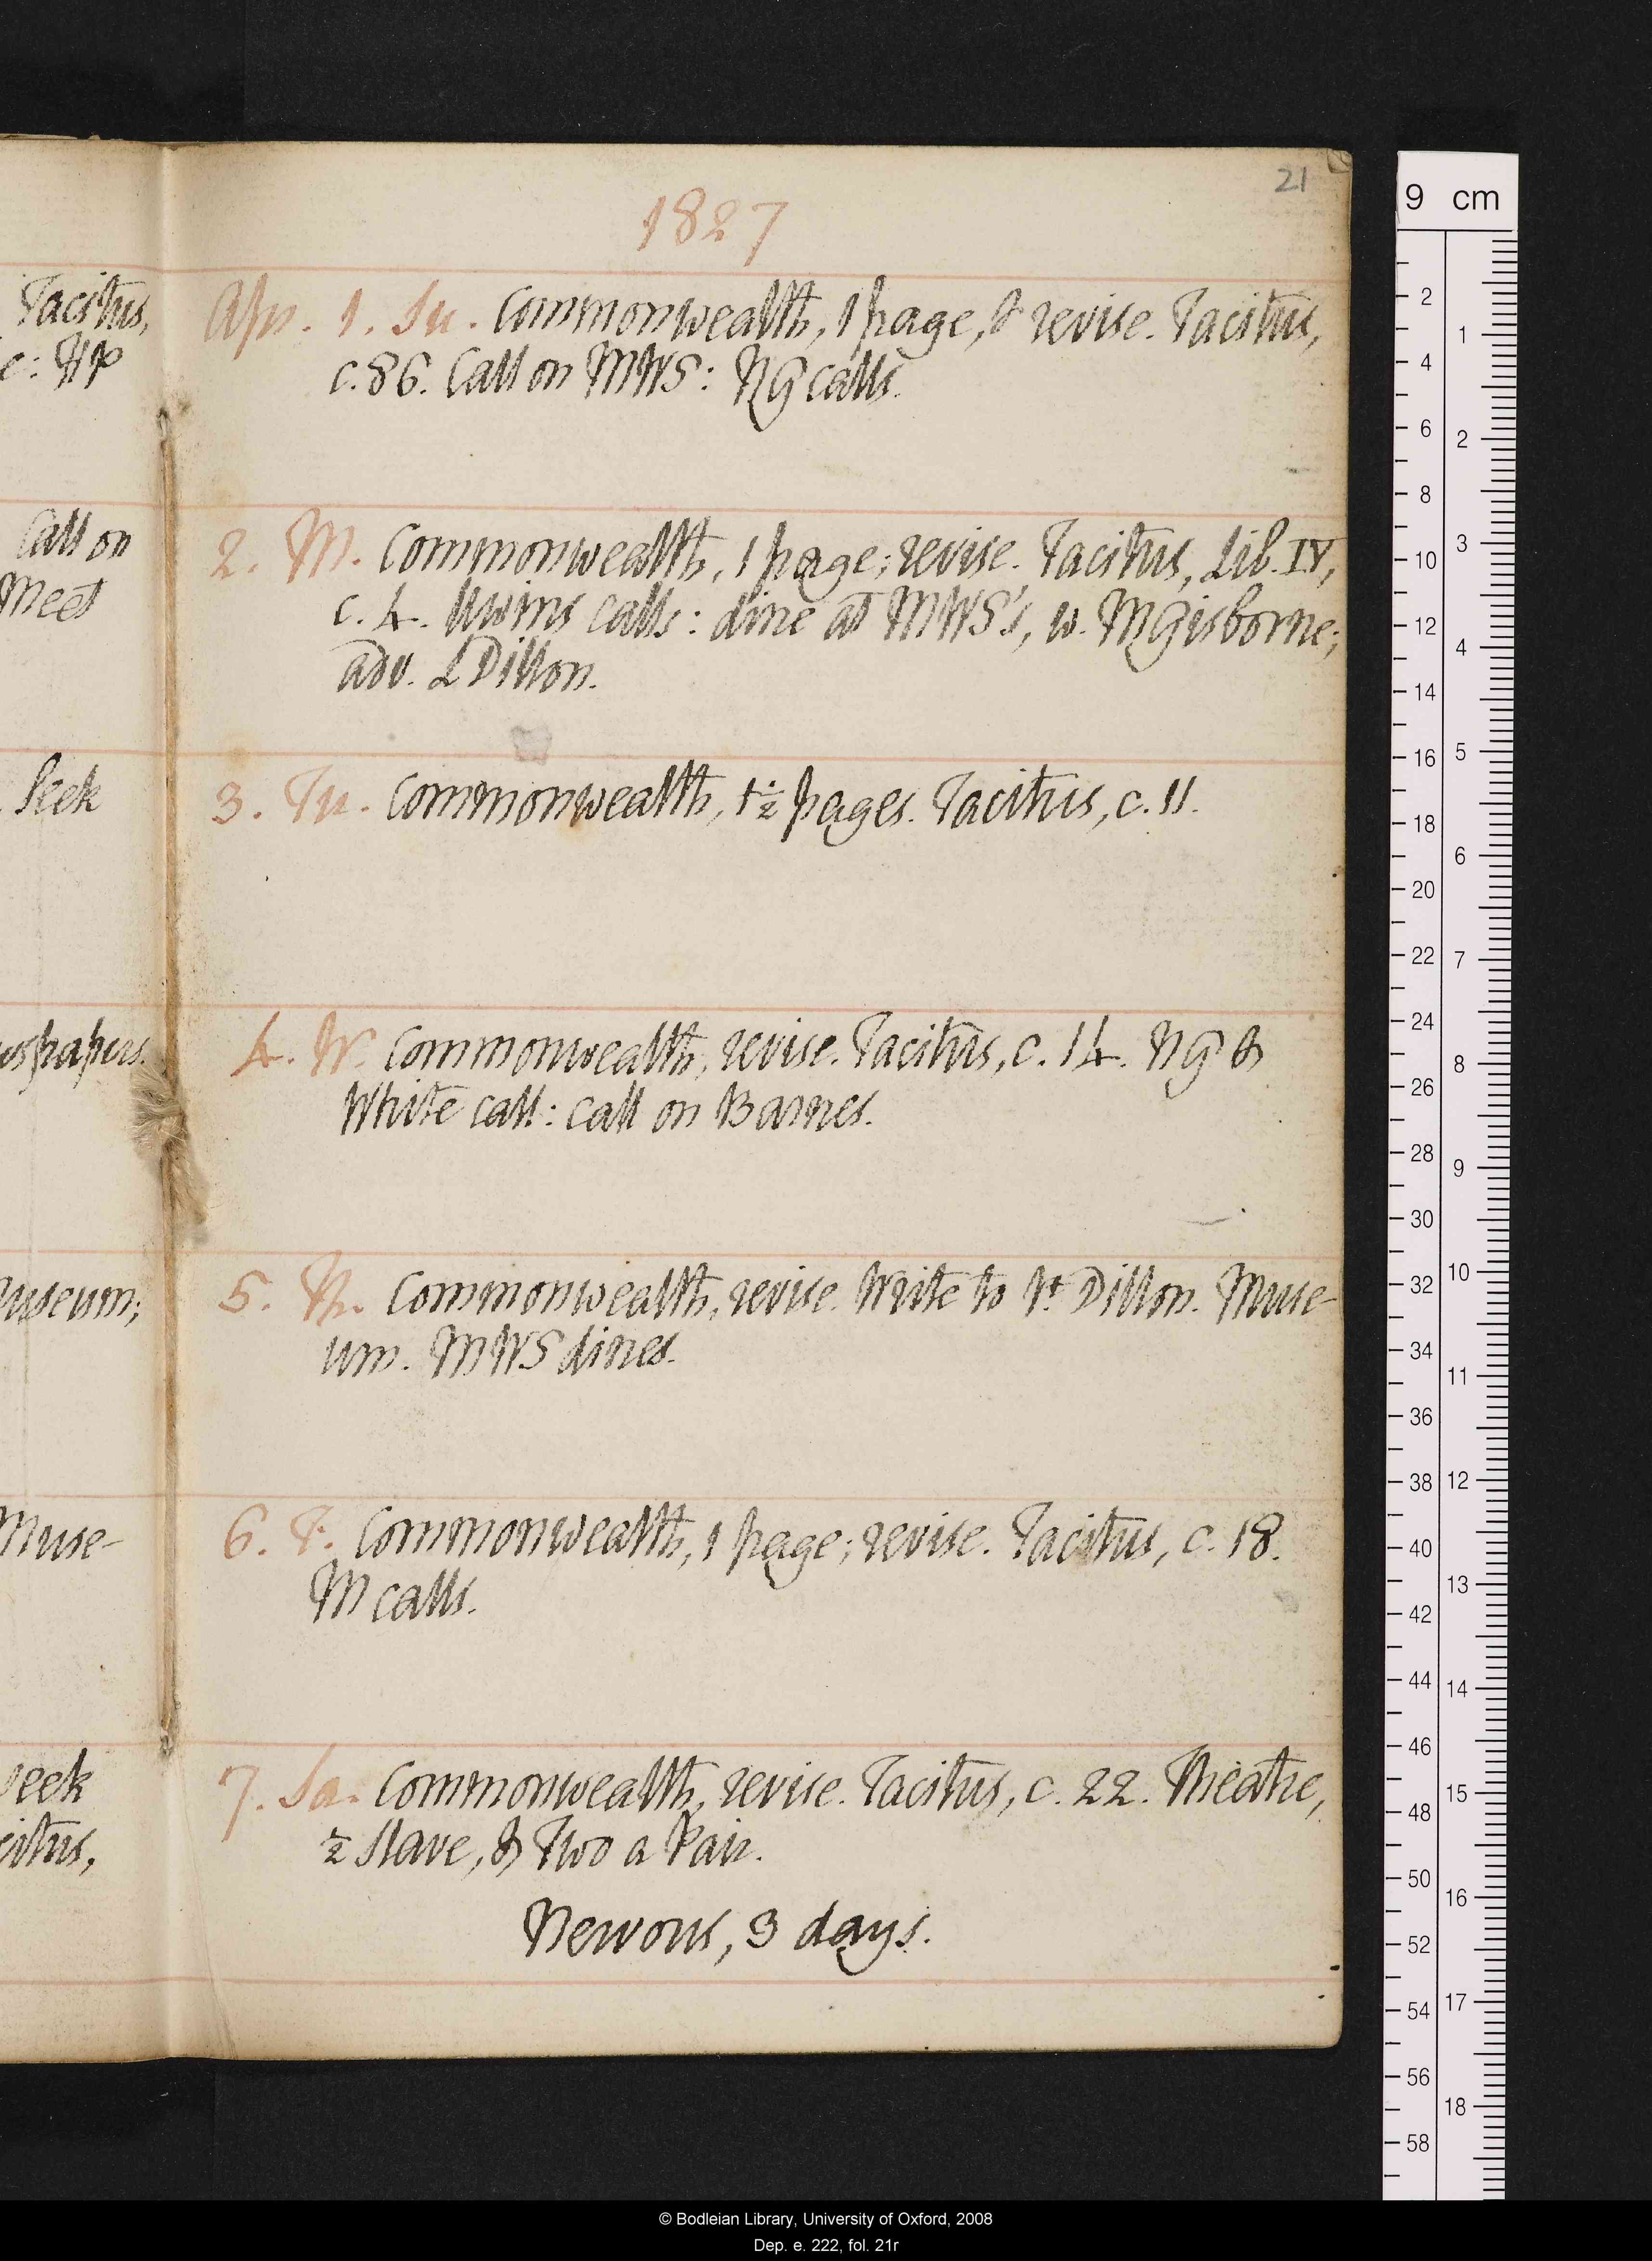 21
1827
Tacitus,
c: HP
Apr. 1. Su. Commonwealth, 1 page, & revise. Tacitus,
c. 86. Call on MWS: NG calls.
Call on
Meet
2. M. Commonwealth, 1 page; revise. Tacitus, Lib. IV,
c. 4. Uwins calls: dine at MWS's, w. M Gisborne;
adv. L Dillon.
Seek
3. Tu. Commonwealth, 1½ pages. Tacitus, c. 11.
wspapers.
4. W. Commonwealth, revise. Tacitus, c. 14. NG &
White call: call on Barnes.
useum;
5. Th. Commonwealth, revise. Write to Vt Dillon. Muse-
um. MWS dines.
Muse-
6. F. Commonwealth, 1 page; revise. Tacitus, c. 18.
M calls.
seek
citus,
7. Sa. Commonwealth, revise. Tacitus, c. 22. Theatre,
½ Slave, & Two a Pair.
Nervous, 3 days.
9 cm
2
4
6
8
10
12
14
16
18
20
22
24
26
28
30
32
34
36
38
40
42
44
46
48
50
52
54
56
58
1
2
3
4
5
6
7
8
9
10
11
12
13
14
15
16
17
18
© Bodleian Library, University of Oxford, 2008
Dep. e. 222, fol. 21r